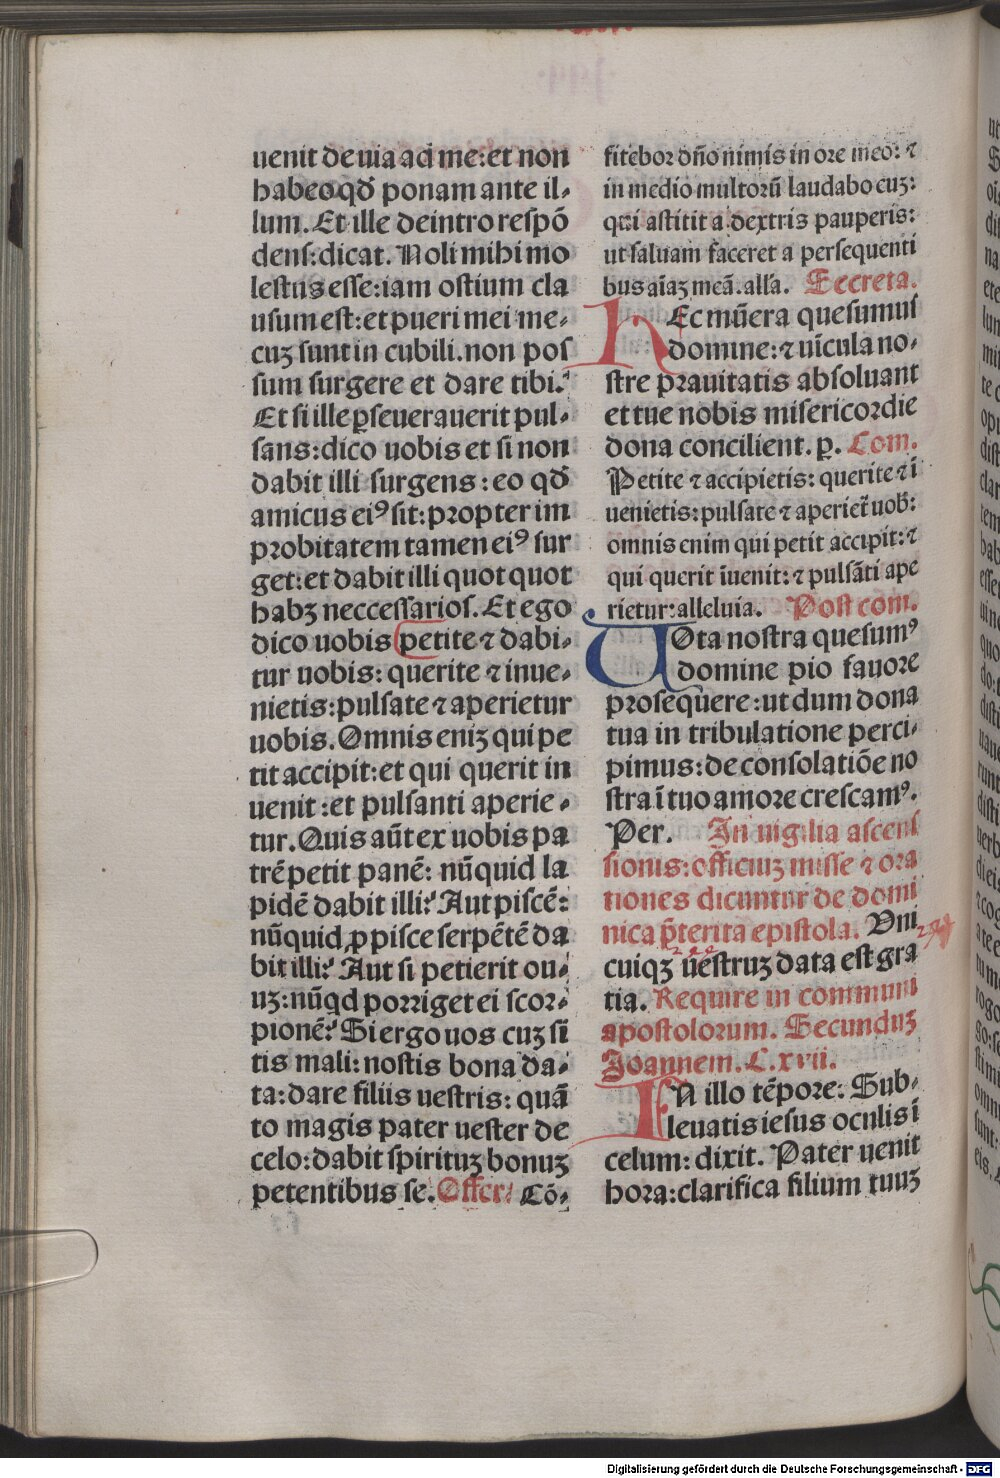 uenit de uia ad me:et non
habeo qđ ponam ante il-
lum. Et ille deintro respō
dens:dicat. Noli mihi mo
lestus esse:iam ostium cla
usum est:et pueri mei me-
cuꝫ sunt in cubili.non pos
sum surgere et dare tibi.
Et si ille ꝑseuerauerit pul-
sans:dico uobis et si non
dabit illi surgens : eo qđ
amicus eiꝰ sit: propter im
probitatem tamen eiꝰ sur
get:et dabit illi quot quot
habꝫ neccessarios. Et ego
dico uobis petite ⁊ dabi-
tur uobis: querite ⁊ inue-
nietis:pulsate ⁊ aperietur
uobis. Omnis eniꝫ qui pe
tit accipit:et qui querit in
uenit :et pulsanti aperie-
tur. Quis aūt ex uobis pa
trē petit panē: nūquid la
pidē dabit illi? Aut piscē:
nūquid ꝓ pisce serpētē da
bit illi? Aut si petierit ou-
uꝫ:nūqd porriget ei scor-
pionē? Si ergo uos cuꝫ si
tis mali: nostis bona da-
ta:dare filiis uestris: quā
to magis pater uester de
celo:dabit spirituꝫ bonuꝫ
petentibus se. Offer. Cō-
fitebor dño nimis in ore meo: ⁊
in medio multorū laudabo euꝫ:
qui astitit a dextris pauperis:
ut saluam faceret a persequenti
bus aīaꝫ meā. alľa. Secreta.
HEc mūera quesumus
domine: ⁊ uīcula no-
stre prauitatis absoluant
et tue nobis misericordie
dona concilient. ꝑ. Com.
Petite ⁊ accipietis: querite ⁊ ī
uenietis: pulsate ⁊ aperiet̄ uob̄:
omnis enim qui petit accipit: ⁊
qui querit īuenit: ⁊ pulsāti ape
rietur: alleluia. Post com.
UOta nostra quesumꝰ
domine pio fauore
prosequere: ut dum dona
tua in tribulatione perci-
pimus: de consolatiōe no
stra ī tuo amore crescamꝰ.
Per. In uigilia ascens
sionis: officiuꝫ misse ⁊ ora
tiones dicuntur de domi
nica p̄terita epistola. Vni
cuiqꝫ uestruꝫ data est gra
tia. Require in communi
apostolorum. Secunduꝫ
Joannem. C. xvii.
IN illo tēpore: Sub-
leuatis iesus oculis ī
celum: dixit. Pater uenit
hora: clarifica filium tuuꝫ
Digitalisierung gefördert durch die Deutsche Forschungsgemeinschaft - DFG